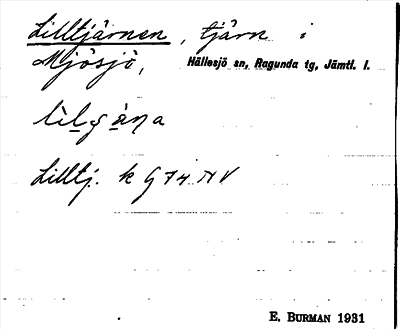 Lilltjärnen, tjärn i
Mjösjö, Hällesjö sn, Ragunda tg, Jämtl. l.
Lilltj. k G 74 NV
E. BURMAN 1931